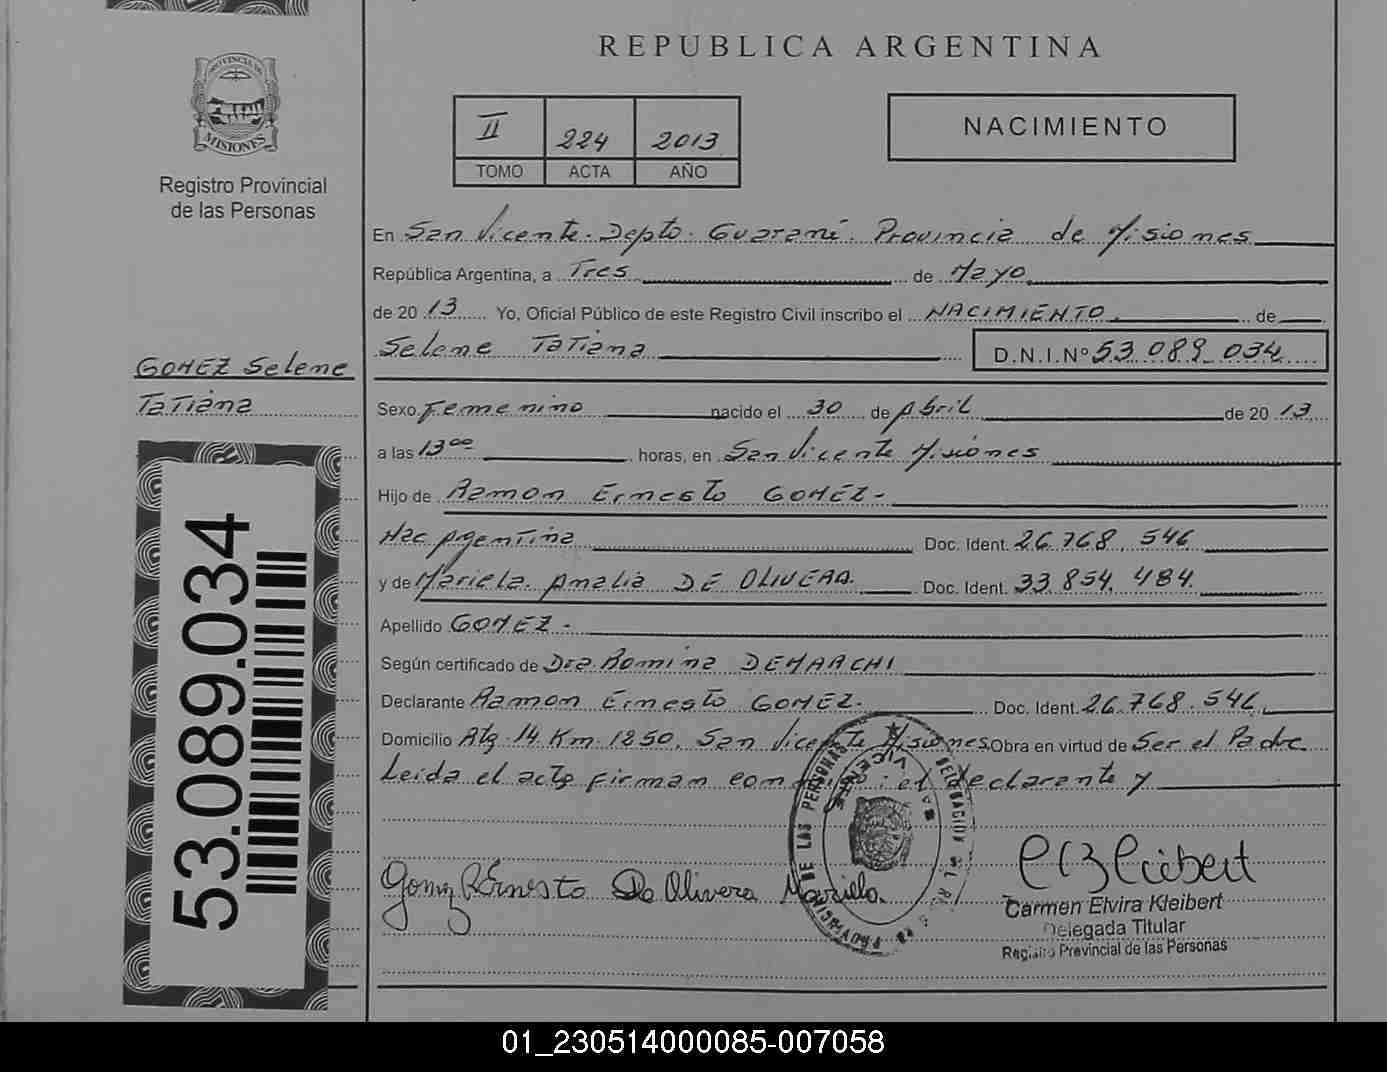 REPUBLICA ARGENTINA
PROVINCIA DE
MISIONES
Registro Provincial
de las Personas
II 224 2013
TOMO ACTA AÑO
NACIMIENTO
En San Vicente. Depto. Guaraní. Provincia de Misiones
República Argentina, a Tres de Mayo
de 2013 Yo, Oficial Público de este Registro Civil inscribo el NACIMIENTO de
Selene Tatiana D.N.I.Nº 53 089 034
GOMEZ Selene
Tatiana
Sexo Femenino nacido el 30 de Abril de 2013
a las 13 00 horas, en San Vicente Misiones
Hijo de Ramon Ernesto GOMEZ.-
Nac Argentina Doc. Ident. 26.768.546
y de Mariela Amalia DE OLIVERA. Doc. Ident. 33.854.484.
Apellido GOMEZ.-
Según certificado de Dra. Romina DEMARCHI
Declarante Ramon Ernesto GOMEZ. Doc. Ident. 26.768.546
Domicilio Km. 1250, San Vicente Misiones Obra en virtud de Ser el Padre
Leida el acta firman el declarante y
53.089.034
Gomez R Ernesto De Olivera Mariela.
Carmen Elvira Kleibert
Delegada Titular
Registro Provincial de las Personas
01_230514000085-007058